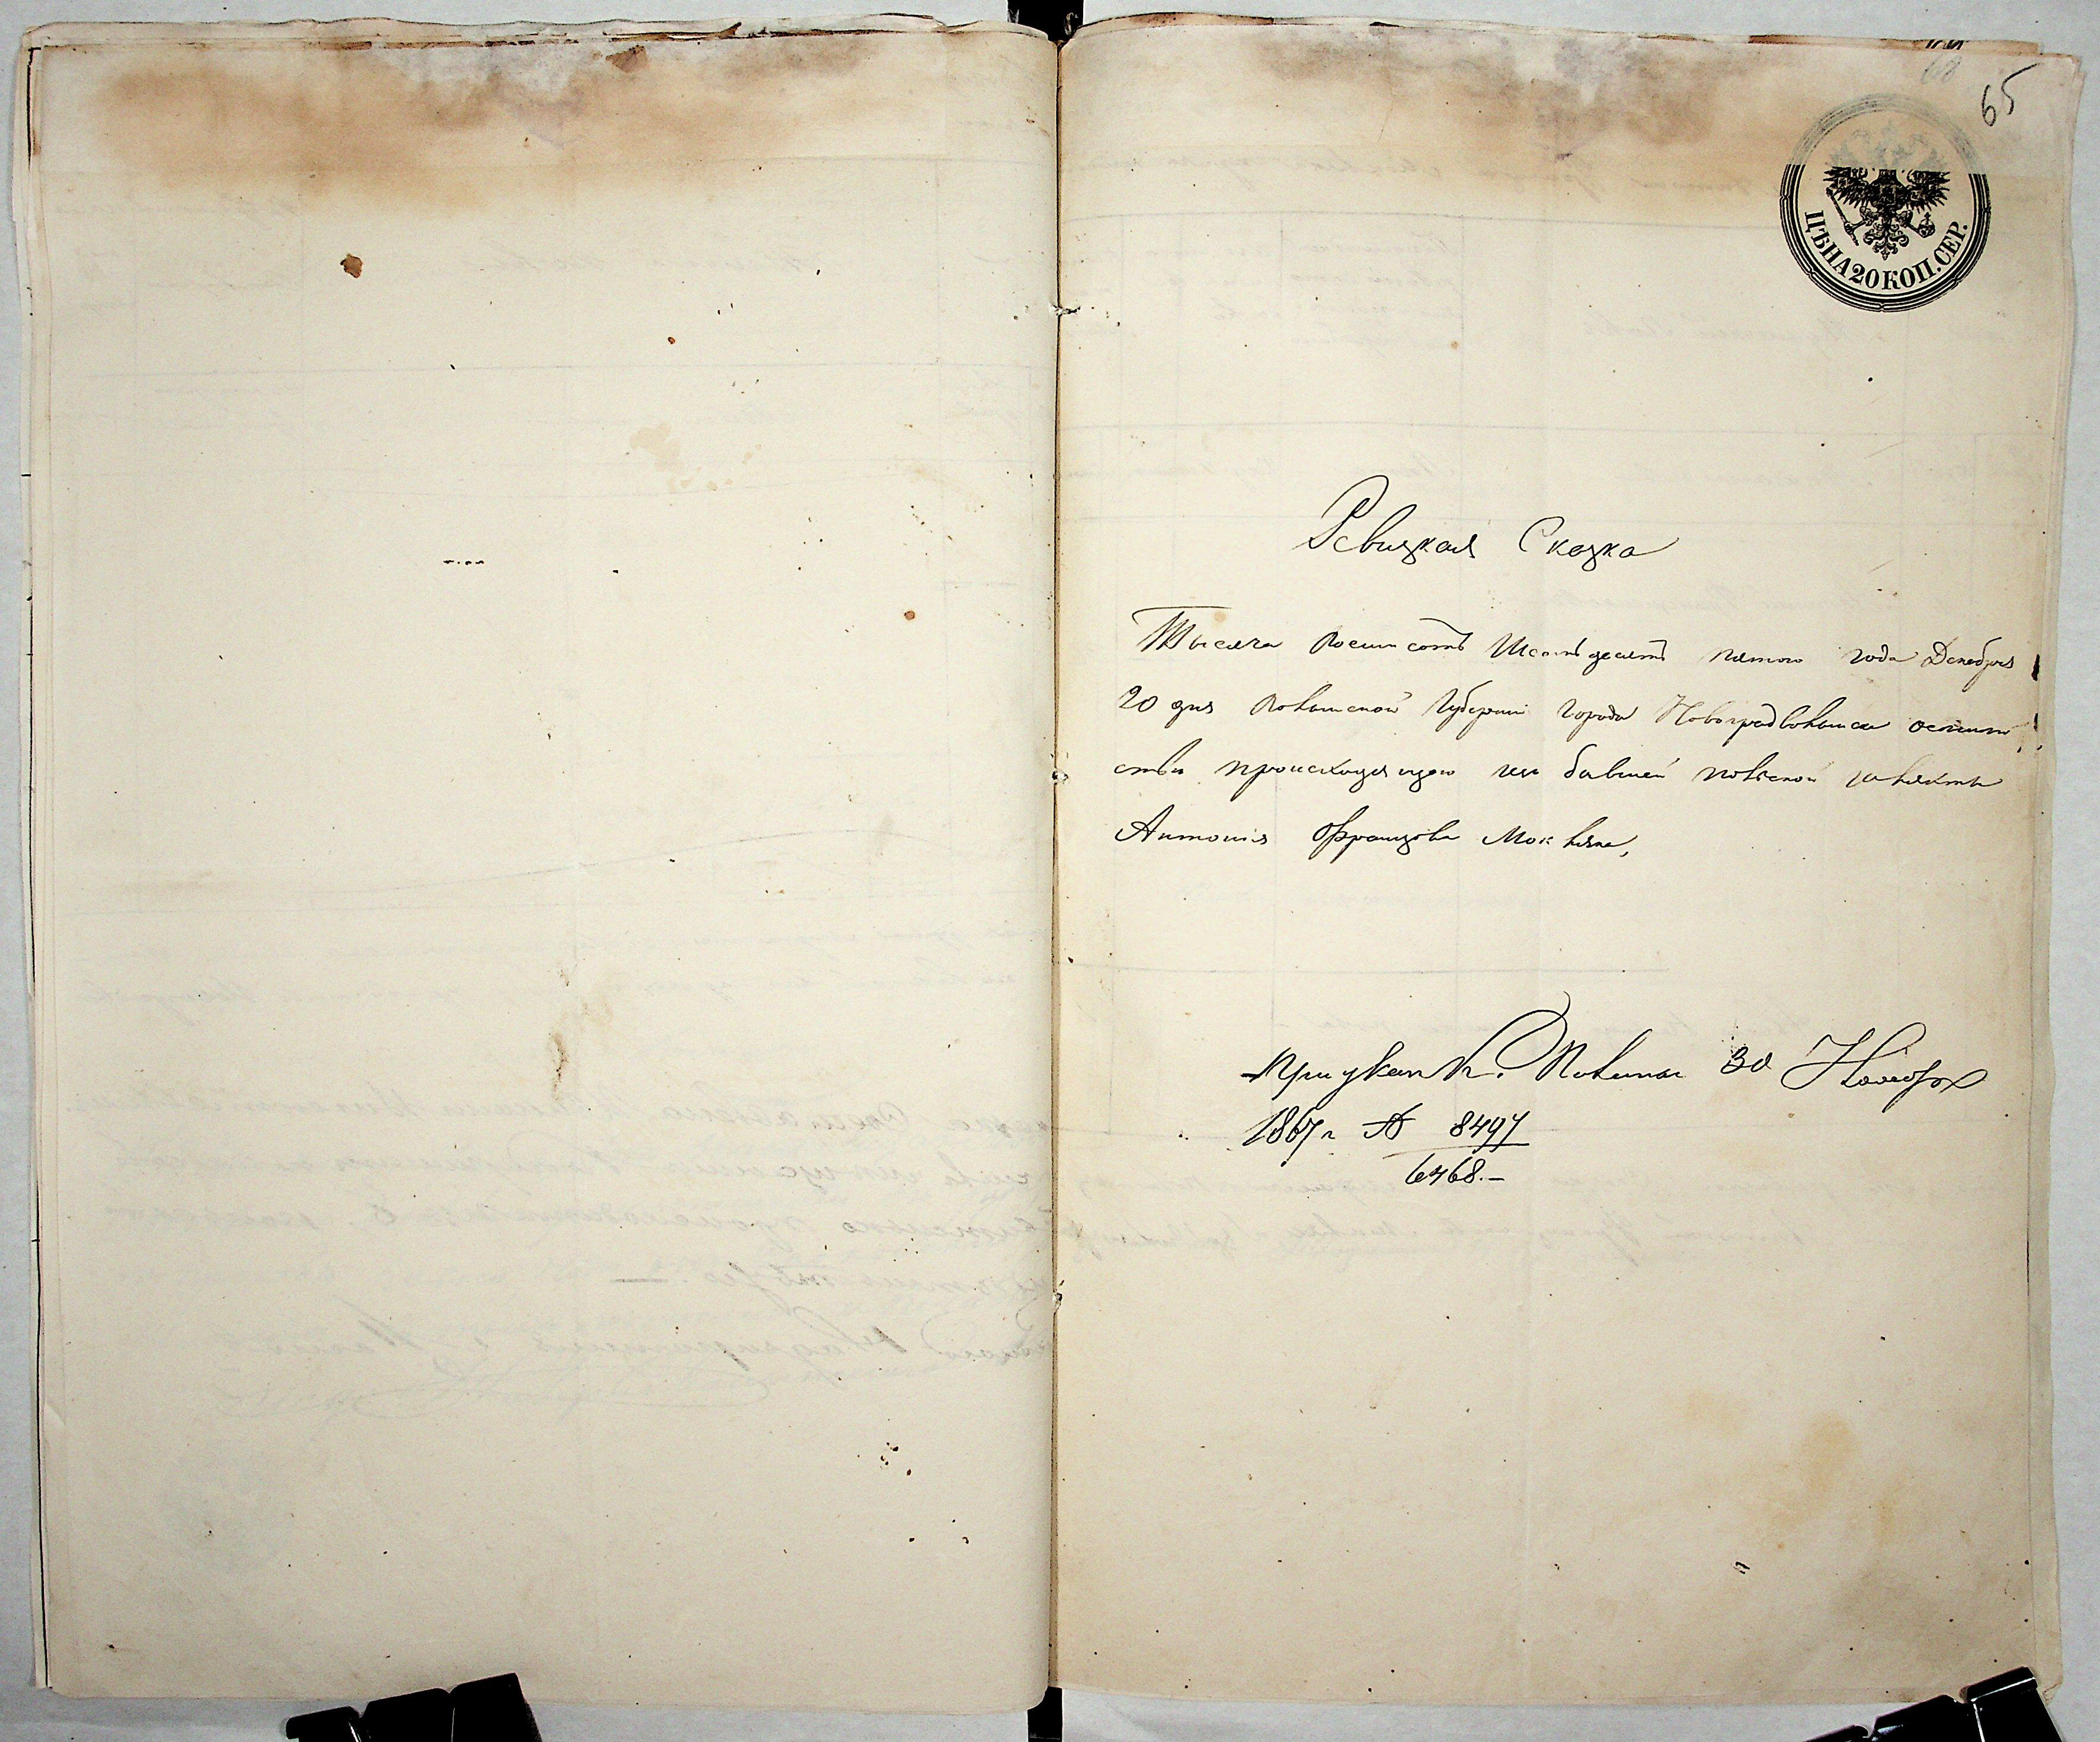 65
ЦѢНА 20 КОП. СЕР.
Ревизкая Сказка
Тысяча восемсотъ Шестьдесятъ пятого года Декабря
20 дня Волынской Губернии города Новоградволынска
ства происходящего изъ бывшей польской шляхты
Антонія Францова
При указѣ К. П. Волынск 30 Ноября
1867 г № 8497
6468.-